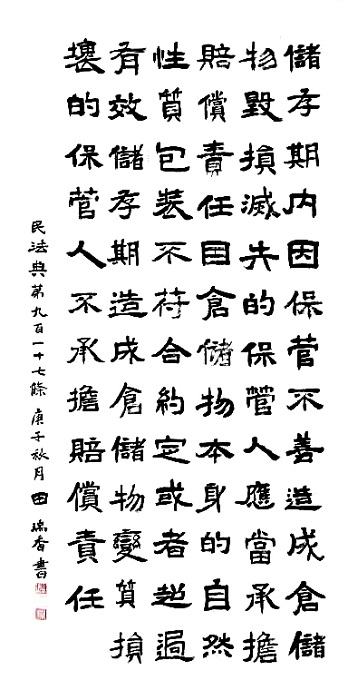 儲存期内因保管不善造成倉儲
物毀損滅失的保管人應當承擔
賠償責任因倉儲物本身的自然
性質包裝不符合約定或者超過
有效儲存期造成倉儲物變質損
壞的保管人不承擔賠償責任
民法典第九百一十七條 庚子秋月 田瑞香書